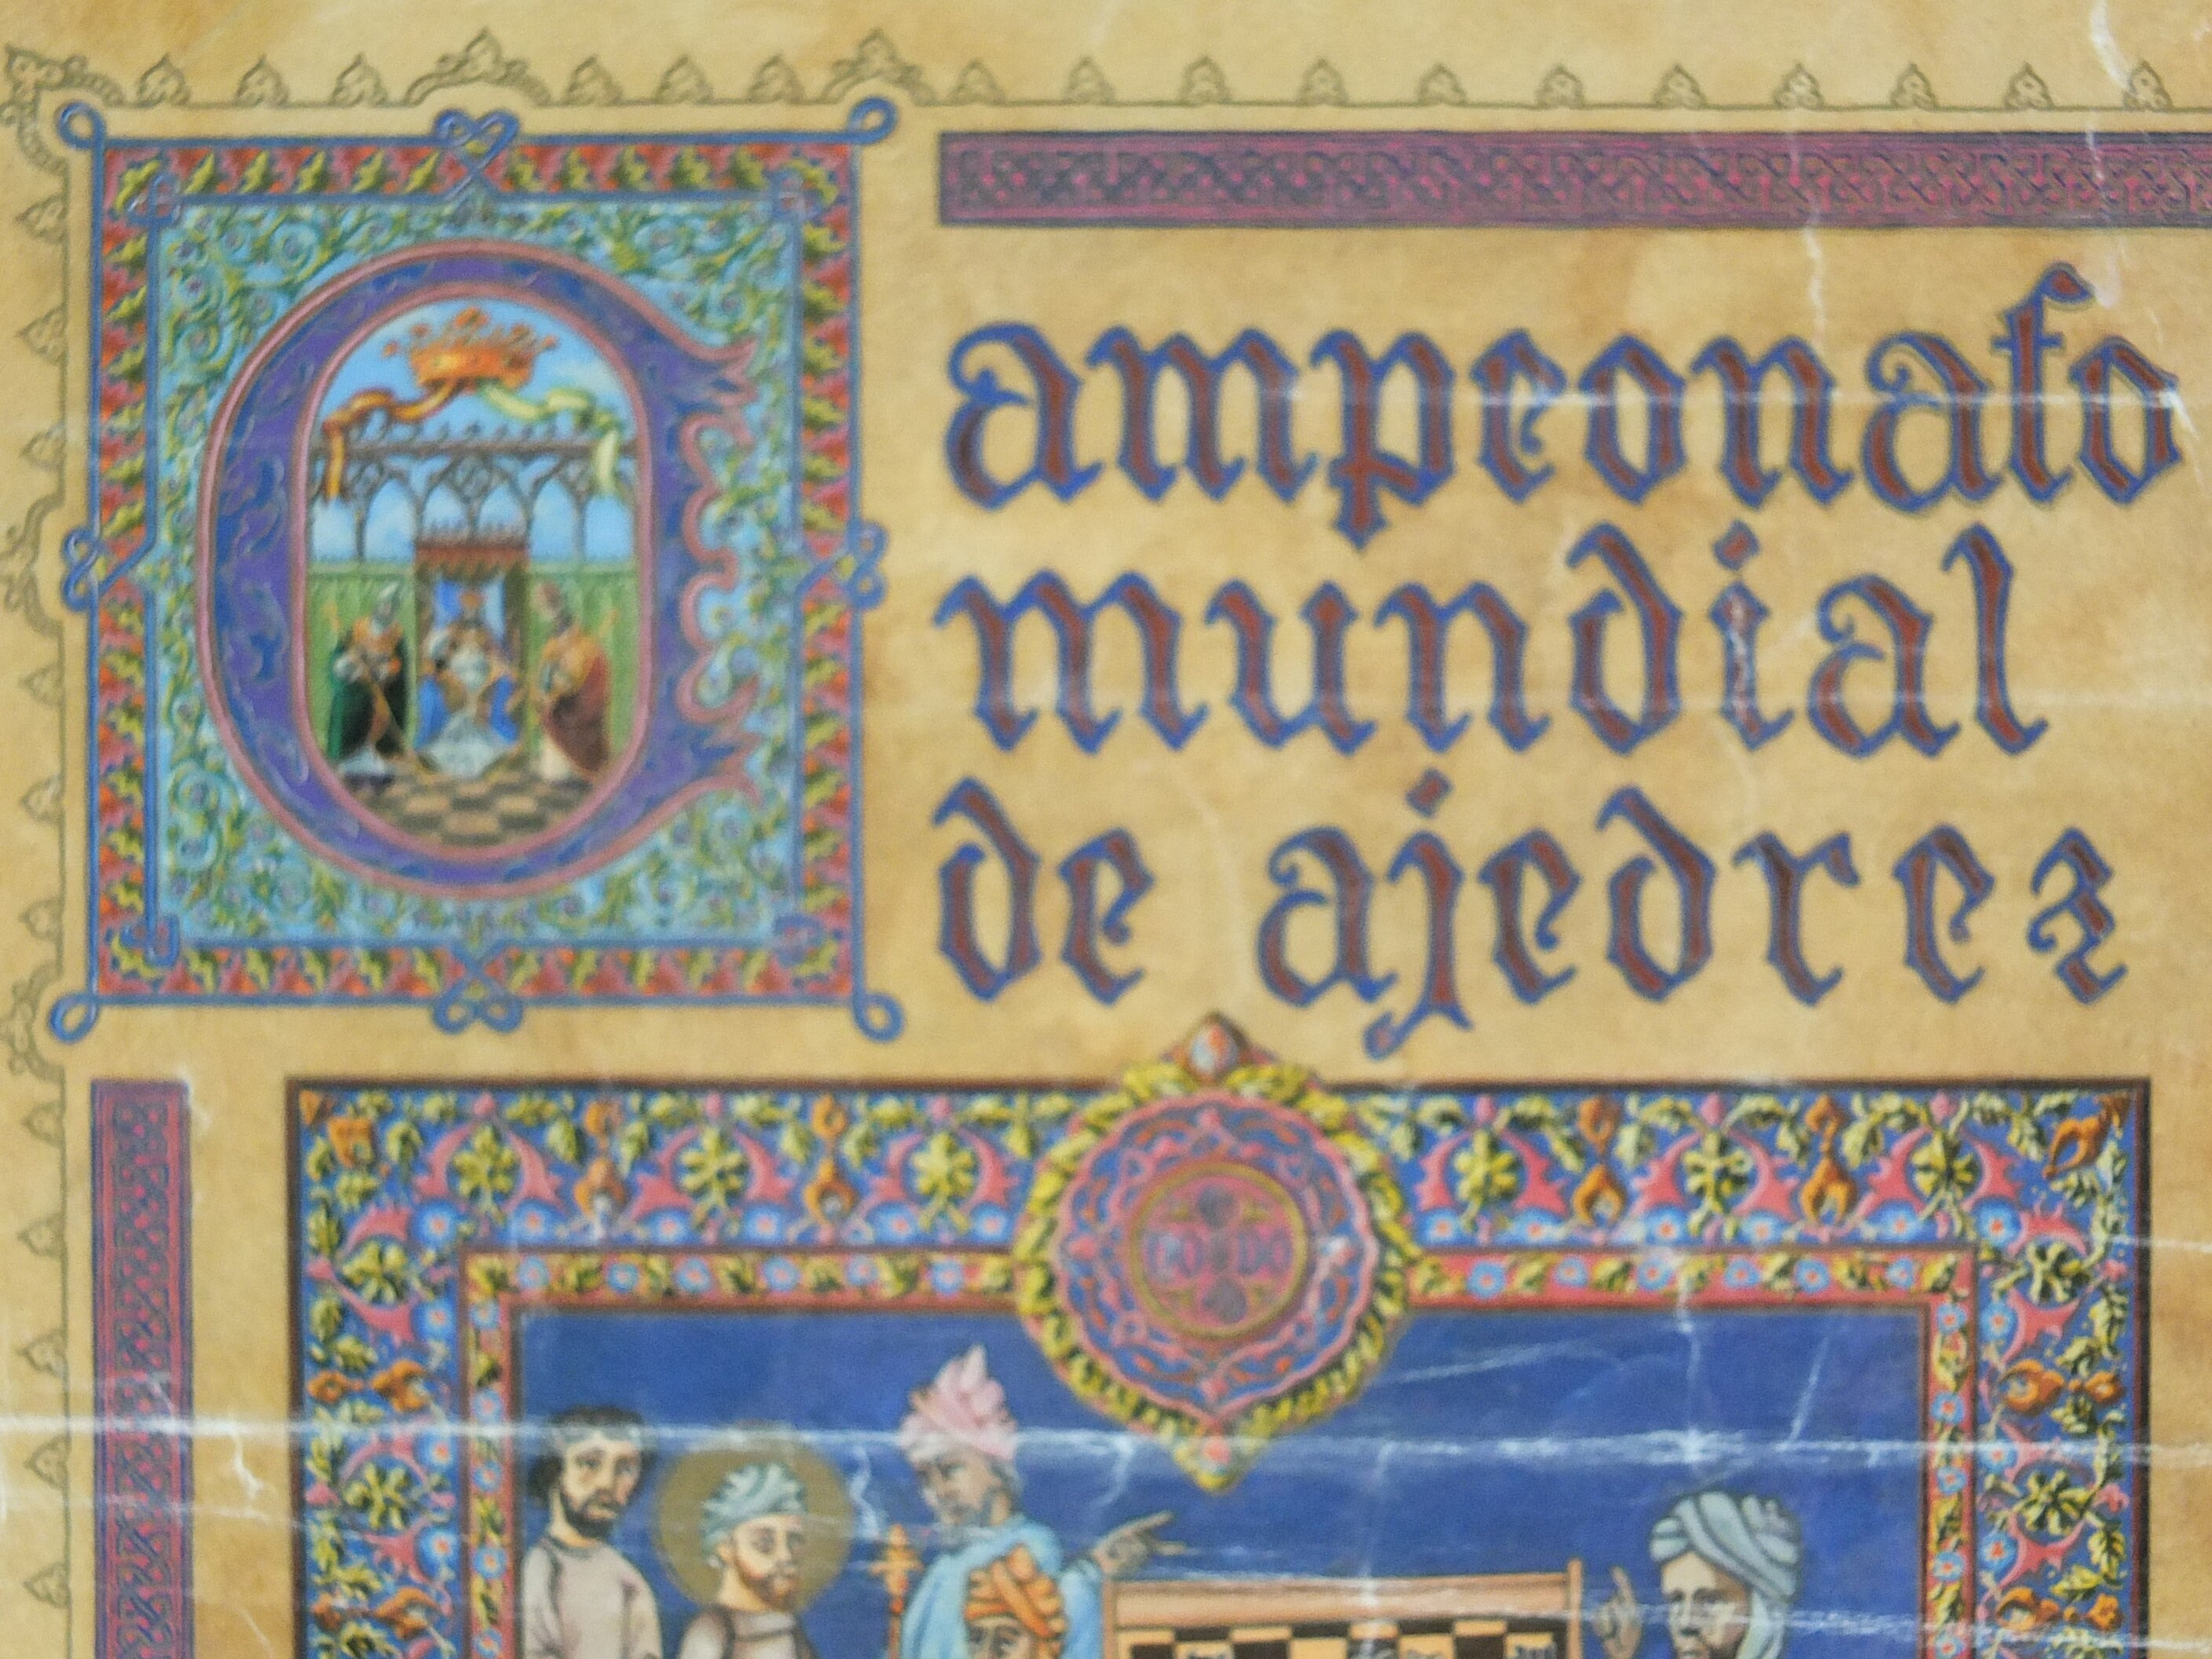 Campeonato
mundial
de ajedrez